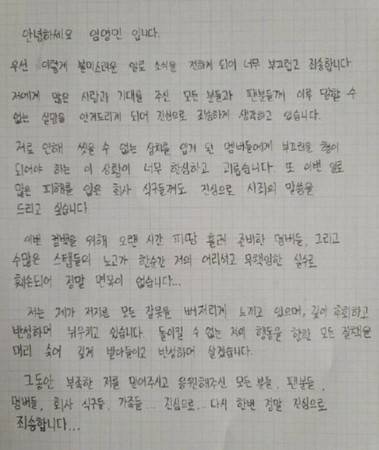 안녕하세요 임영민 입니다.
우선 이렇게 불미스러운 일로 소식을 전하게 되어 너무 부끄럽고 죄송합니다
저에게 많은 사랑과 기대를 주신 모든 분들과 팬분들께 이루 말할 수
없는 실망을 안겨드리게 되어 진심으로 죄송하게 생각하고 있습니다.
저로 인해 씻을 수 없는 상처를 입게 된 멤버들에게 부끄러운 형이
되어야 하는 이 상황이 너무 한심하고 괴롭습니다. 또 이번 일로
많은 피해를 입은 회사 식구들께도 진심으로 사죄의 말씀을
드리고 싶습니다
이번 컴백을 위해 오랜 시간 피땀 흘려 준비한 멤버들, 그리고
수많은 스탭들의 노고가 한순간 저의 어리석고 무책임한 실수로
훼손되어 정말 면목이 없습니다...
저는 제가 저지른 모든 잘못을 뼈저리게 느끼고 있으며, 깊이 후회하고
반성하며 뉘우치고 있습니다. 돌이킬 수 없는 저의 행동을 향한 모든 질책을
머리 숙여 깊게 받아들이고 반성하며 살겠습니다.
그동안 부족한 저를 믿어주시고 응원해주신 모든 분들, 팬분들,
멤버들, 회사 식구들, 가족들... 진심으로... 다시 한번 정말 진심으로
죄송합니다...